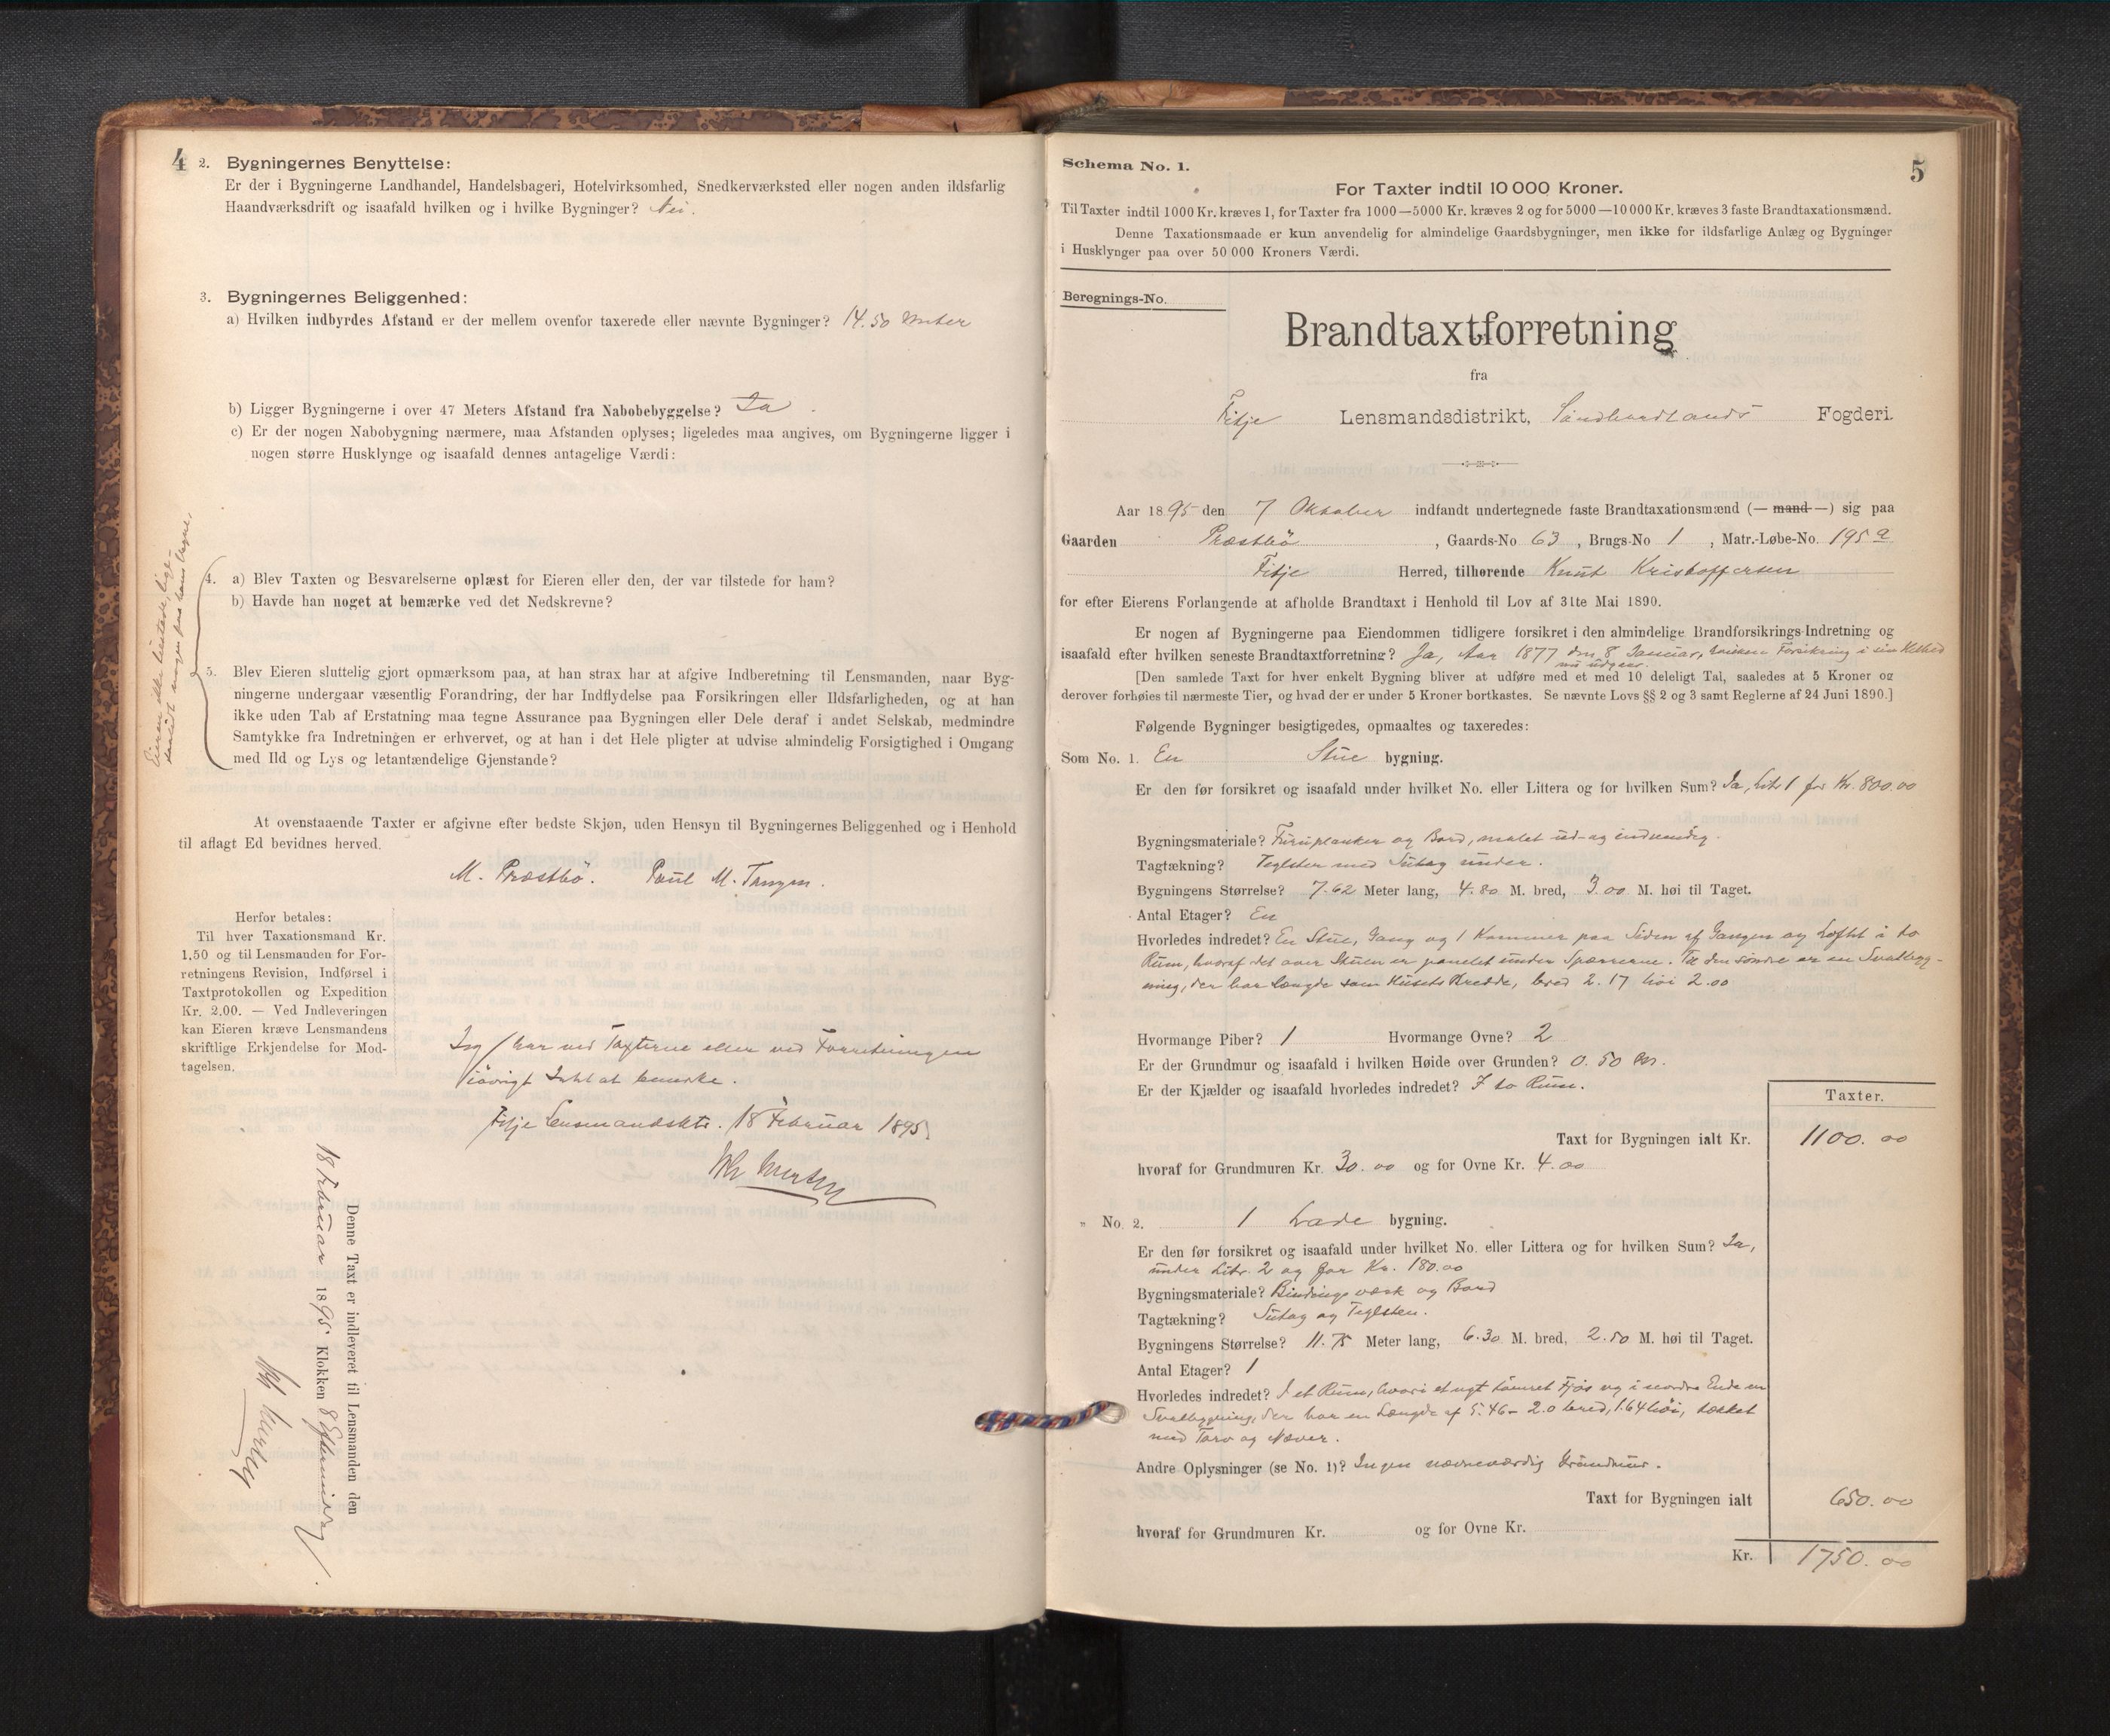 4
2. Bygningernes Benyttelse:
Er der i Bygningerne Landhandel, Handelsbageri, Hotelvirksomhed, Snedkerværksted eller nogen anden ildsfarlig
Haandværksdrift og isaafald hvilken og i hvilke Bygninger? Nei.
3. Bygningernes Beliggenhed:
a) Hvilken indbyrdes Afstand er der mellem ovenfor taxerede eller nævnte Bygninger? 14.50 Meter
b) Ligger Bygningerne i over 47 Meters Afstand fra Nabobebyggelse? Ja.
c) Er der nogen Nabobygning nærmere, maa Afstanden oplyses; ligeledes maa angives, om Bygningerne ligger i
nogen større Husklynge og isaafald dennes antagelige Værdi:
Eieren ikke tilstede, lige-
4. a) Blev Taxten og Besvarelserne oplæst for Eieren eller den, der var tilstede for ham?
b) Havde han noget at bemærke ved det Nedskrevne?
5. Blev Eieren sluttelig gjort opmærksom paa, at han strax har at afgive Indberetning til Lensmanden, naar Byg-
ningerne undergaar væsentlig Forandring, der har Indflydelse paa Forsikringen eller Ildsfarligheden, og at han
ikke uden Tab af Erstatning maa tegne Assurance paa Bygningen eller Dele deraf i andet Selskab, medmindre
Samtykke fra Indretningen er erhvervet, og at han i det Hele pligter at udvise almindelig Forsigtighed i Omgang
med Ild og Lys og letantændelige Gjenstande?
At ovenstaaende Taxter er afgivne efter bedste Skjøn, uden Hensyn til Bygningernes Beliggenhed og i Henhold
til aflagt Ed bevidnes herved.
M. Præstbö. Poul M. Tangen.
Herfor betales:
Til hver Taxationsmand Kr.
1,50 og til Lensmanden for For-
retningens Revision, Indførsel i
Taxtprotokollen og Expedition
Kr. 2,00. — Ved Indleveringen
kan Eieren kræve Lensmandens
skriftlige Erkjendelse for Mod-
tagelsen.
Jeg har ved Taxterne eller ved Forretningen
iøvrigt Intet at bemerke.
Fitje Lensmandskt. 18 Februar 1895
Denne Taxt er indleveret til Lensmanden den
18 Februar 1895 Klokken 8 Eftermiddag
Schema No. 1.
5
For Taxter indtil 10 000 Kroner.
Til Taxter indtil 1000 Kr. kræves 1, for Taxter fra 1000—5000 Kr. kræves 2 og for 5000—10 000 Kr. kræves 3 faste Brandtaxationsmænd.
Denne Taxationsmaade er kun anvendelig for almindelige Gaardsbygninger, men ikke for ildsfarlige Anlæg og Bygninger
i Husklynger paa over 50 000 Kroners Værdi.
Beregnings-No.
Brandtaxtforretning
fra
Fitje Lensmandsdistrikt, Søndhordlands Fogderi.
Aar 1895 den 7 Oktober indfandt undertegnede faste Brandtaxationsmænd (— mand —) sig paa
Gaarden Præstbö, Gaards-No 63, Brugs-No 1, Matr.-Løbe-No. 195a
Fitje Herred, tilhørende Knut Kristoffersen
for efter Eierens Forlangende at afholde Brandtaxt i Henhold til Lov af 31te Mai 1890.
Er nogen af Bygningerne paa Eiendommen tidligere forsikret i den almindelige Brandforsikrings-Indretning og
isaafald efter hvilken seneste Brandtaxtforretning? Ja, Aar 1877 den 8 Januar, hvilken Forsikring i sin Helhed
nu udgaar.
[Den samlede Taxt for hver enkelt Bygning bliver at udføre med et med 10 deleligt Tal, saaledes at 5 Kroner og
derover forhøies til nærmeste Tier, og hvad der er under 5 Kroner bortkastes. Se nævnte Lovs §§ 2 og 3 samt Reglerne af 24 Juni 1890.]
Følgende Bygninger besigtigedes, opmaaltes og taxeredes:
Som No. 1. En Stue bygning.
Er den før forsikret og isaafald under hvilket No. eller Littera og for hvilken Sum? Ja, Litr 1 for Kr. 800.00
Bygningsmateriale? Furuplanker og Bord, malet ud- og indvendig.
Tagtækning? Teglsten med Sutag under.
Bygningens Størrelse? 7.62 Meter lang, 4.80 M. bred, 3.00 M. høi til Taget.
Antal Etager? En
Hvorledes indredet? En Stue, Gang og 1 Kammer paa Siden af Gangen og Loftet i to
Rum, hvoraf det over Stuen er panelet under Sparrerne. Til den søndre er en Svalbyg-
ning, der har Længde som Husets Bredde, bred 2.17 høi 2.00
Hvormange Piber? 1 Hvormange Ovne? 2
Er der Grundmur og isaafald i hvilken Høide over Grunden? 0.50 m.
Er der Kjælder og isaafald hvorledes indredet? I to Rum.
Taxter.
Taxt for Bygningen ialt Kr. 1100.00
hvoraf for Grundmuren Kr. 30.00 og for Ovne Kr. 4.00
„ No. 2. 1 Lade bygning.
Er den før forsikret og isaafald under hvilket No. eller Littera og for hvilken Sum? Ja,
under Litr. 2 og for Kr. 180.00
Bygningsmateriale? Bindingsværk og Bord
Tagtækning? Sutag og Teglsten.
Bygningens Størrelse? 11.75 Meter lang, 6.30 M. bred, 2.50 M. høi til Taget.
Antal Etager? 1
Hvorledes indredet? I et Rum, hvori et nyt tømret Fjøs og i nordre Ende en
Svalbygning, der har en Længde af 5.46 - 2.0 bred, 1.64 høi, tækket
med Torv og Næver.
Andre Oplysninger (se No. 1)? Ingen nævneværdig Grundmur.
Taxt for Bygningen ialt 650.00
hvoraf for Grundmuren Kr. og for Ovne Kr.
Kr. 1750.00